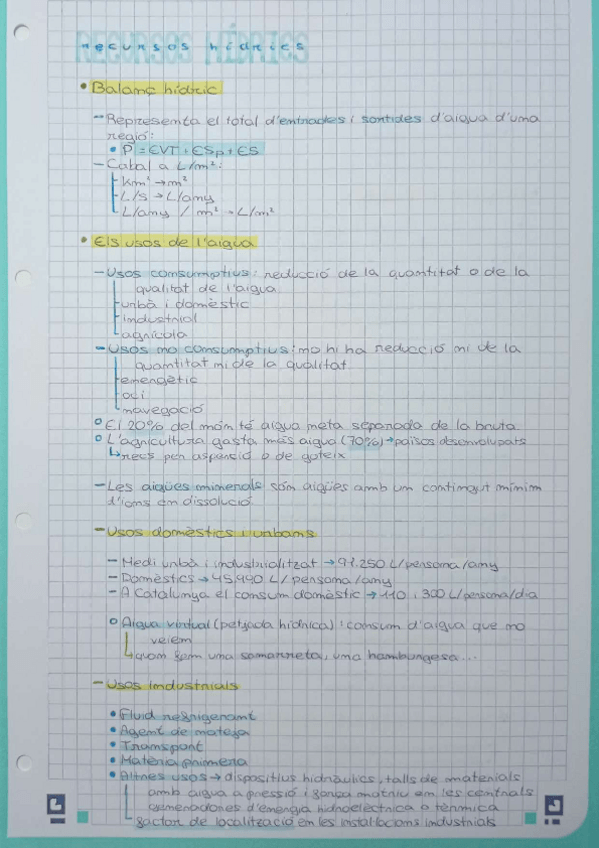 RECURSOS HÍDRICS
recursos hídrics
• Balanç hídric
- Representa el total d'entrades i sortides d'aigua d'una
regió:
• P = EVT + ESp + ES
- Cabal a L/m²:
km² → m²
L/s → L/any
L/any / m² → L/m²
• Els usos de l'aigua
- Usos consumptius: reducció de la quantitat o de la
qualitat de l'aigua
urbà i domèstic
industrial
agrícola
- Usos no consumptius: no hi ha reducció ni de la
quantitat ni de la qualitat
energètic
oci
navegació
° El 20% del món té aigua neta separada de la bruta.
° L'agricultura gasta més aigua (70%) → països desenvolupats
↳ recs per aspersió o de goteix
- Les aigües minerals són aigües amb un contingut mínim
d'ions en dissolució.
- Usos domèstics i urbans
- Medi urbà i industrialitzat → 91.250 L/persona/any
- Domèstics → 45.990 L/persona/any
- A Catalunya el consum domèstic → 110 i 300 L/persona/dia
° Aigua virtual (petjada hídrica): consum d'aigua que no
veiem
quan fem una samarreta, una hamburgesa...
- Usos industrials
• Fluid refrigerant
• Agent de neteja
• Transport
• Matèria primera
• Altres usos → dispositius hidràulics, talls de materials
amb aigua a pressió i força motriu en les centrals
generadores d'energia hidroelèctrica o tèrmica
factor de localització en les instal·lacions industrials